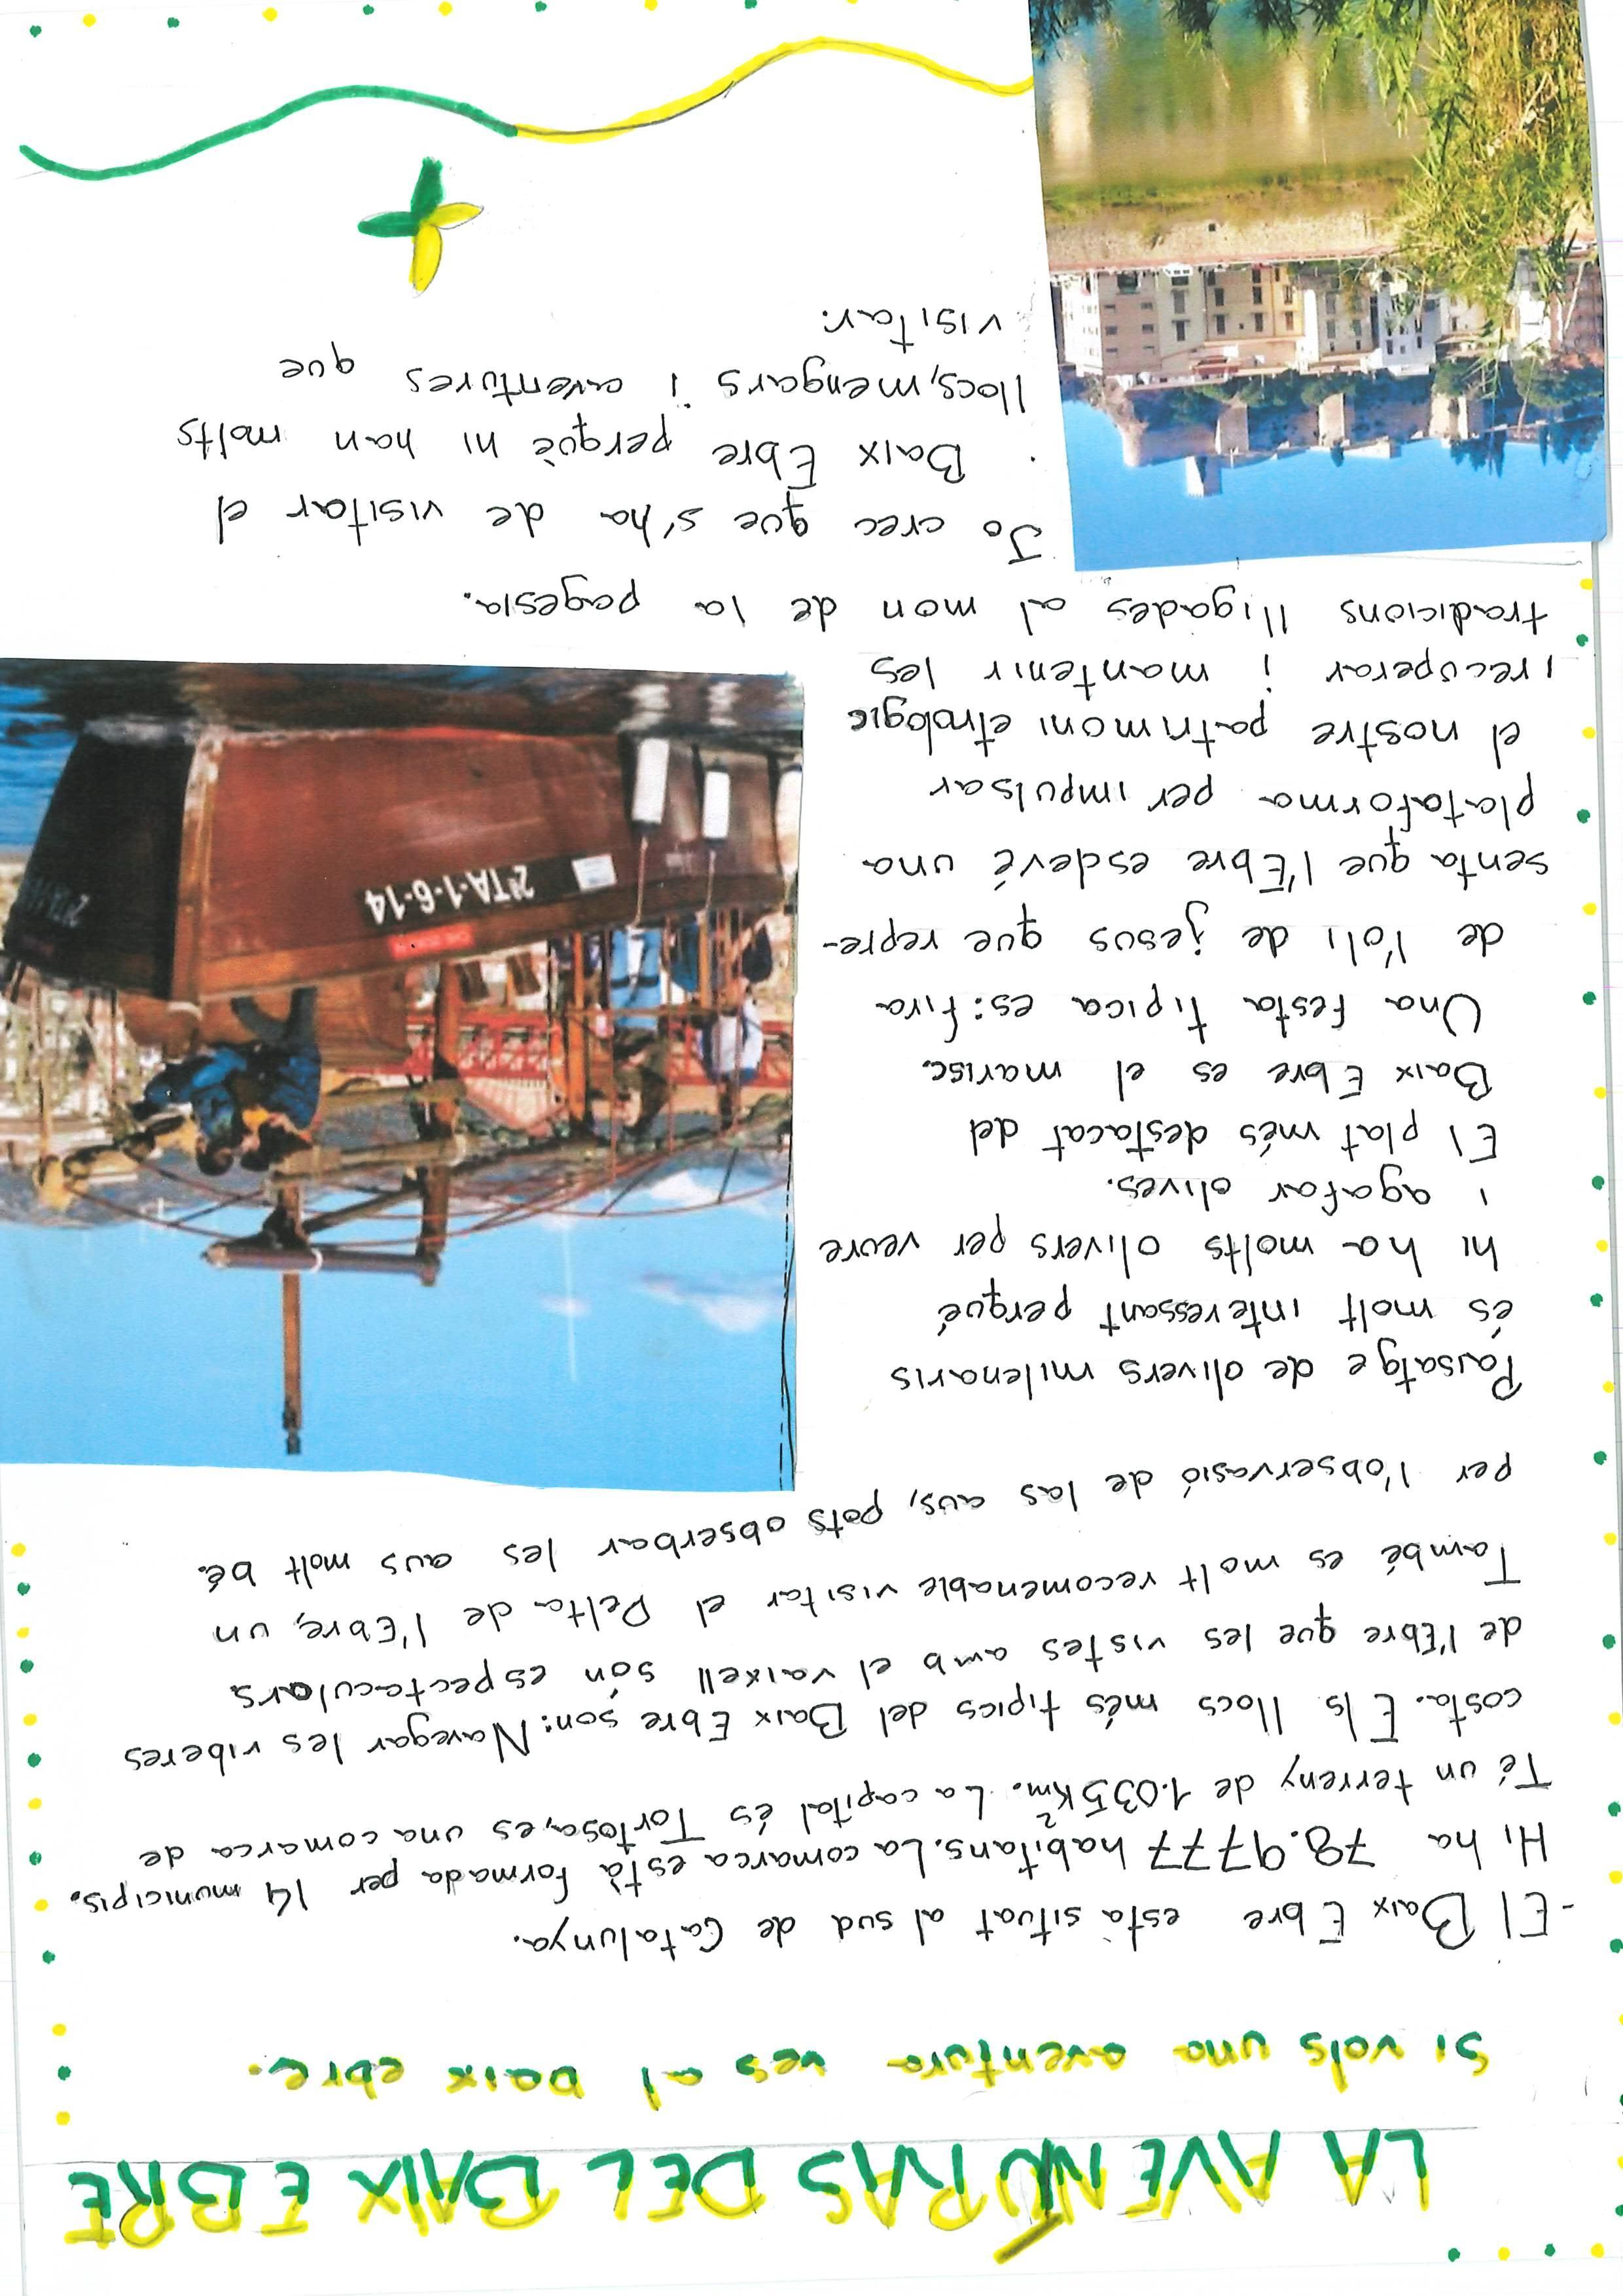 LA AVENTURAS DEL BAIX EBRE
si vols una aventura ves al baix ebre.
-El Baix Ebre està situat al sud de Catalunya.
Hi ha 78.9777 habitans. La comarca està formada per 14 municipis.
Té un terreny de 1.035 Km². La capital és Tortosa, es una comarca de
costa. Els llocs més tipics del Baix Ebre son: Navegar les riberes
de l'Ebre que les vistes amb el vaixell són espectaculars
També es molt recomenable visitar el Delta de l'Ebre, un
per l'observasió de las aus, pots obserbar les aus molt bé.
Paisatge de olivers milenaris
és molt interessant perqué
hi ha molts olivers per veure
i agafar olives.
El plat més destacat del
Baix Ebre es el marisc.
Una festa tipica es: fira
de l'oli de jesus que repre-
senta que l'Ebre esdevé una
plataforma per impulsar
el nostre patrimoni etnologic
i recuperar i mantenir les
tradicions lligades al mon de la pagesia.
Jo crec que s'ha de visitar el
Baix Ebre perquè hi han molts
llocs, mengars i aventures que
visitar.
2ªTA-1-6-14